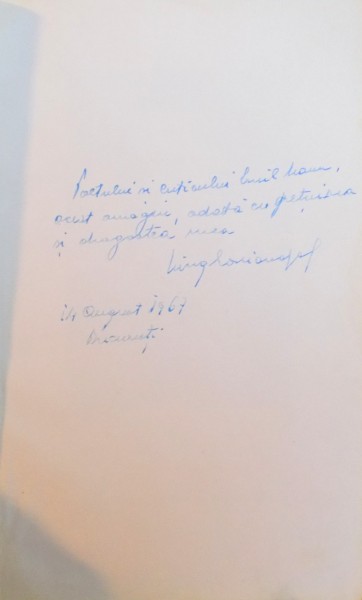 Poetului și criticului Emil Manu,
acest omagiu, odată cu prețuirea
și dragostea mea
14 August 1967
București